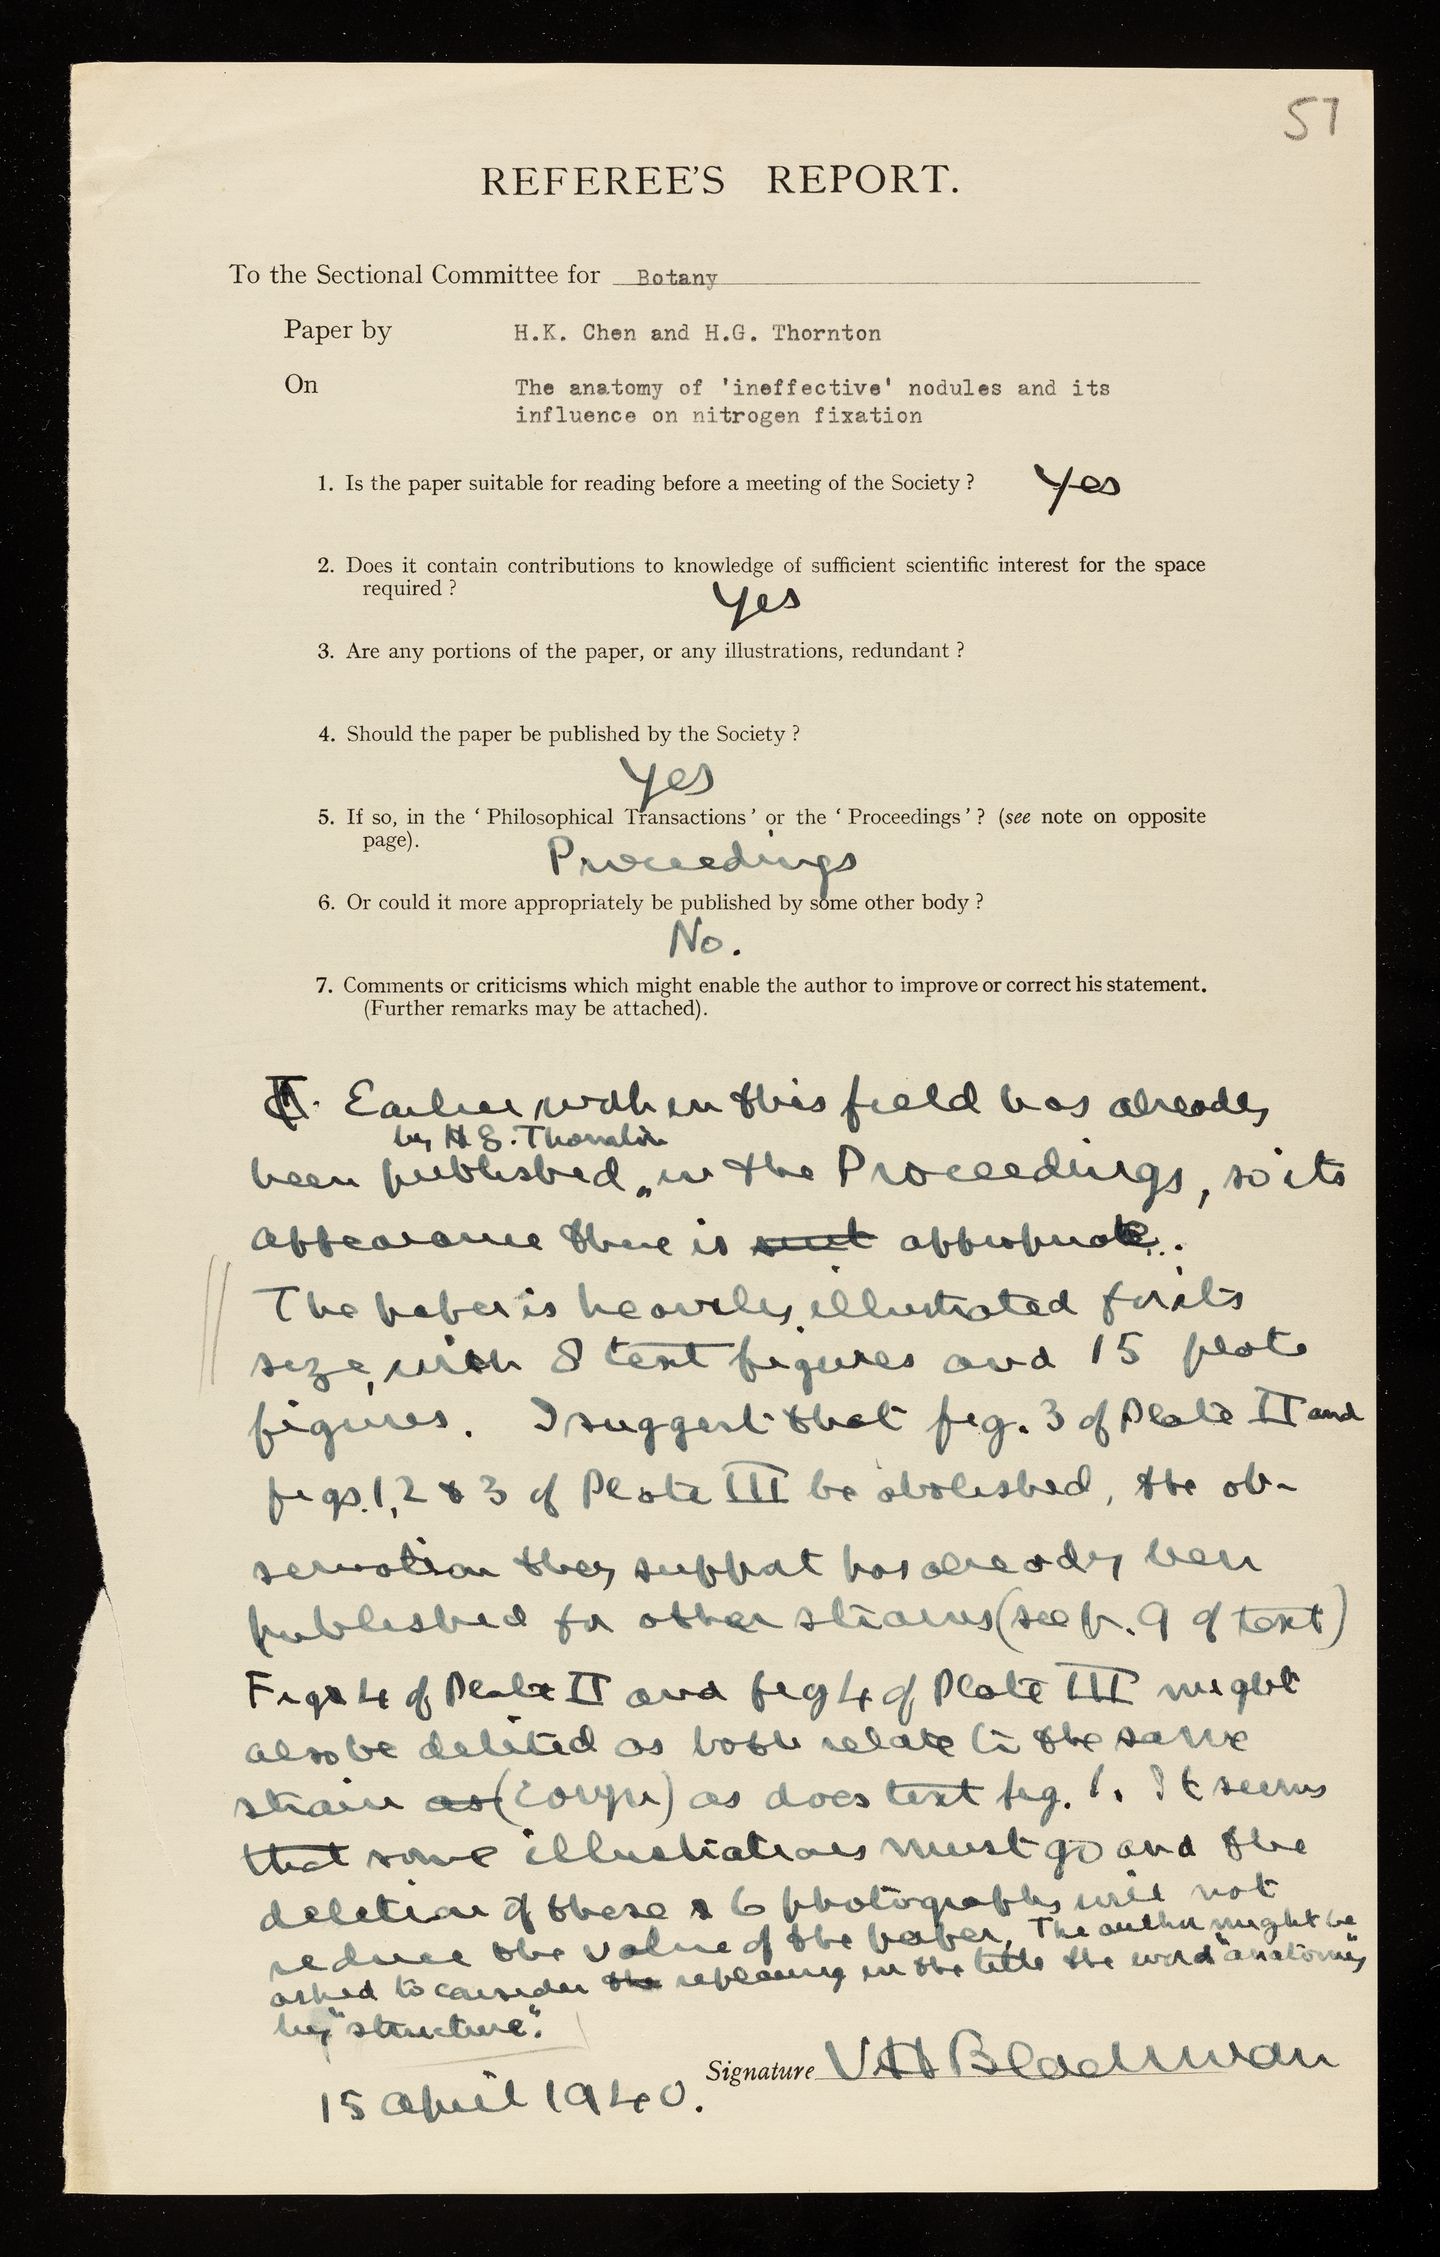 57
REFEREE'S REPORT.
To the Sectional Committee for Botany
Paper by H.K. Chen and H.G. Thornton
On The anatomy of 'ineffective' nodules and its
influence on nitrogen fixation
1. Is the paper suitable for reading before a meeting of the Society ? Yes
2. Does it contain contributions to knowledge of sufficient scientific interest for the space
required ? Yes
3. Are any portions of the paper, or any illustrations, redundant ?
4. Should the paper be published by the Society ?
Yes
5. If so, in the ‘ Philosophical Transactions ’ or the ‘ Proceedings ’ ? (see note on opposite
page).
Proceedings
6. Or could it more appropriately be published by some other body ?
No.
7. Comments or criticisms which might enable the author to improve or correct his statement.
(Further remarks may be attached).
Earlier work in this field has already
by H G. Thornton
been published in the Proceedings, so its
appearance there is appropriate.
The paper is heavily illustrated for its
size, with 8 text figures and 15 plate
figures. I suggest that fig. 3 of Plate II and
figs. 1, 2 & 3 of Plate III be abolished, the ob-
servation they support has already been
published for other strains (see p. 9 of text)
Figs 4 of Plate II and fig 4 of Plate III might
also be deleted as both relate to the same
strain as (Coryn) as does text fig. 1. It seems
that some illustrations must go and the
deletion of these 6 photographs will not
reduce the value of the paper. The author might be
asked to consider the replacing in the title the word "anatomy"
by "structure".
Signature VH Blackman
15 April 1940.